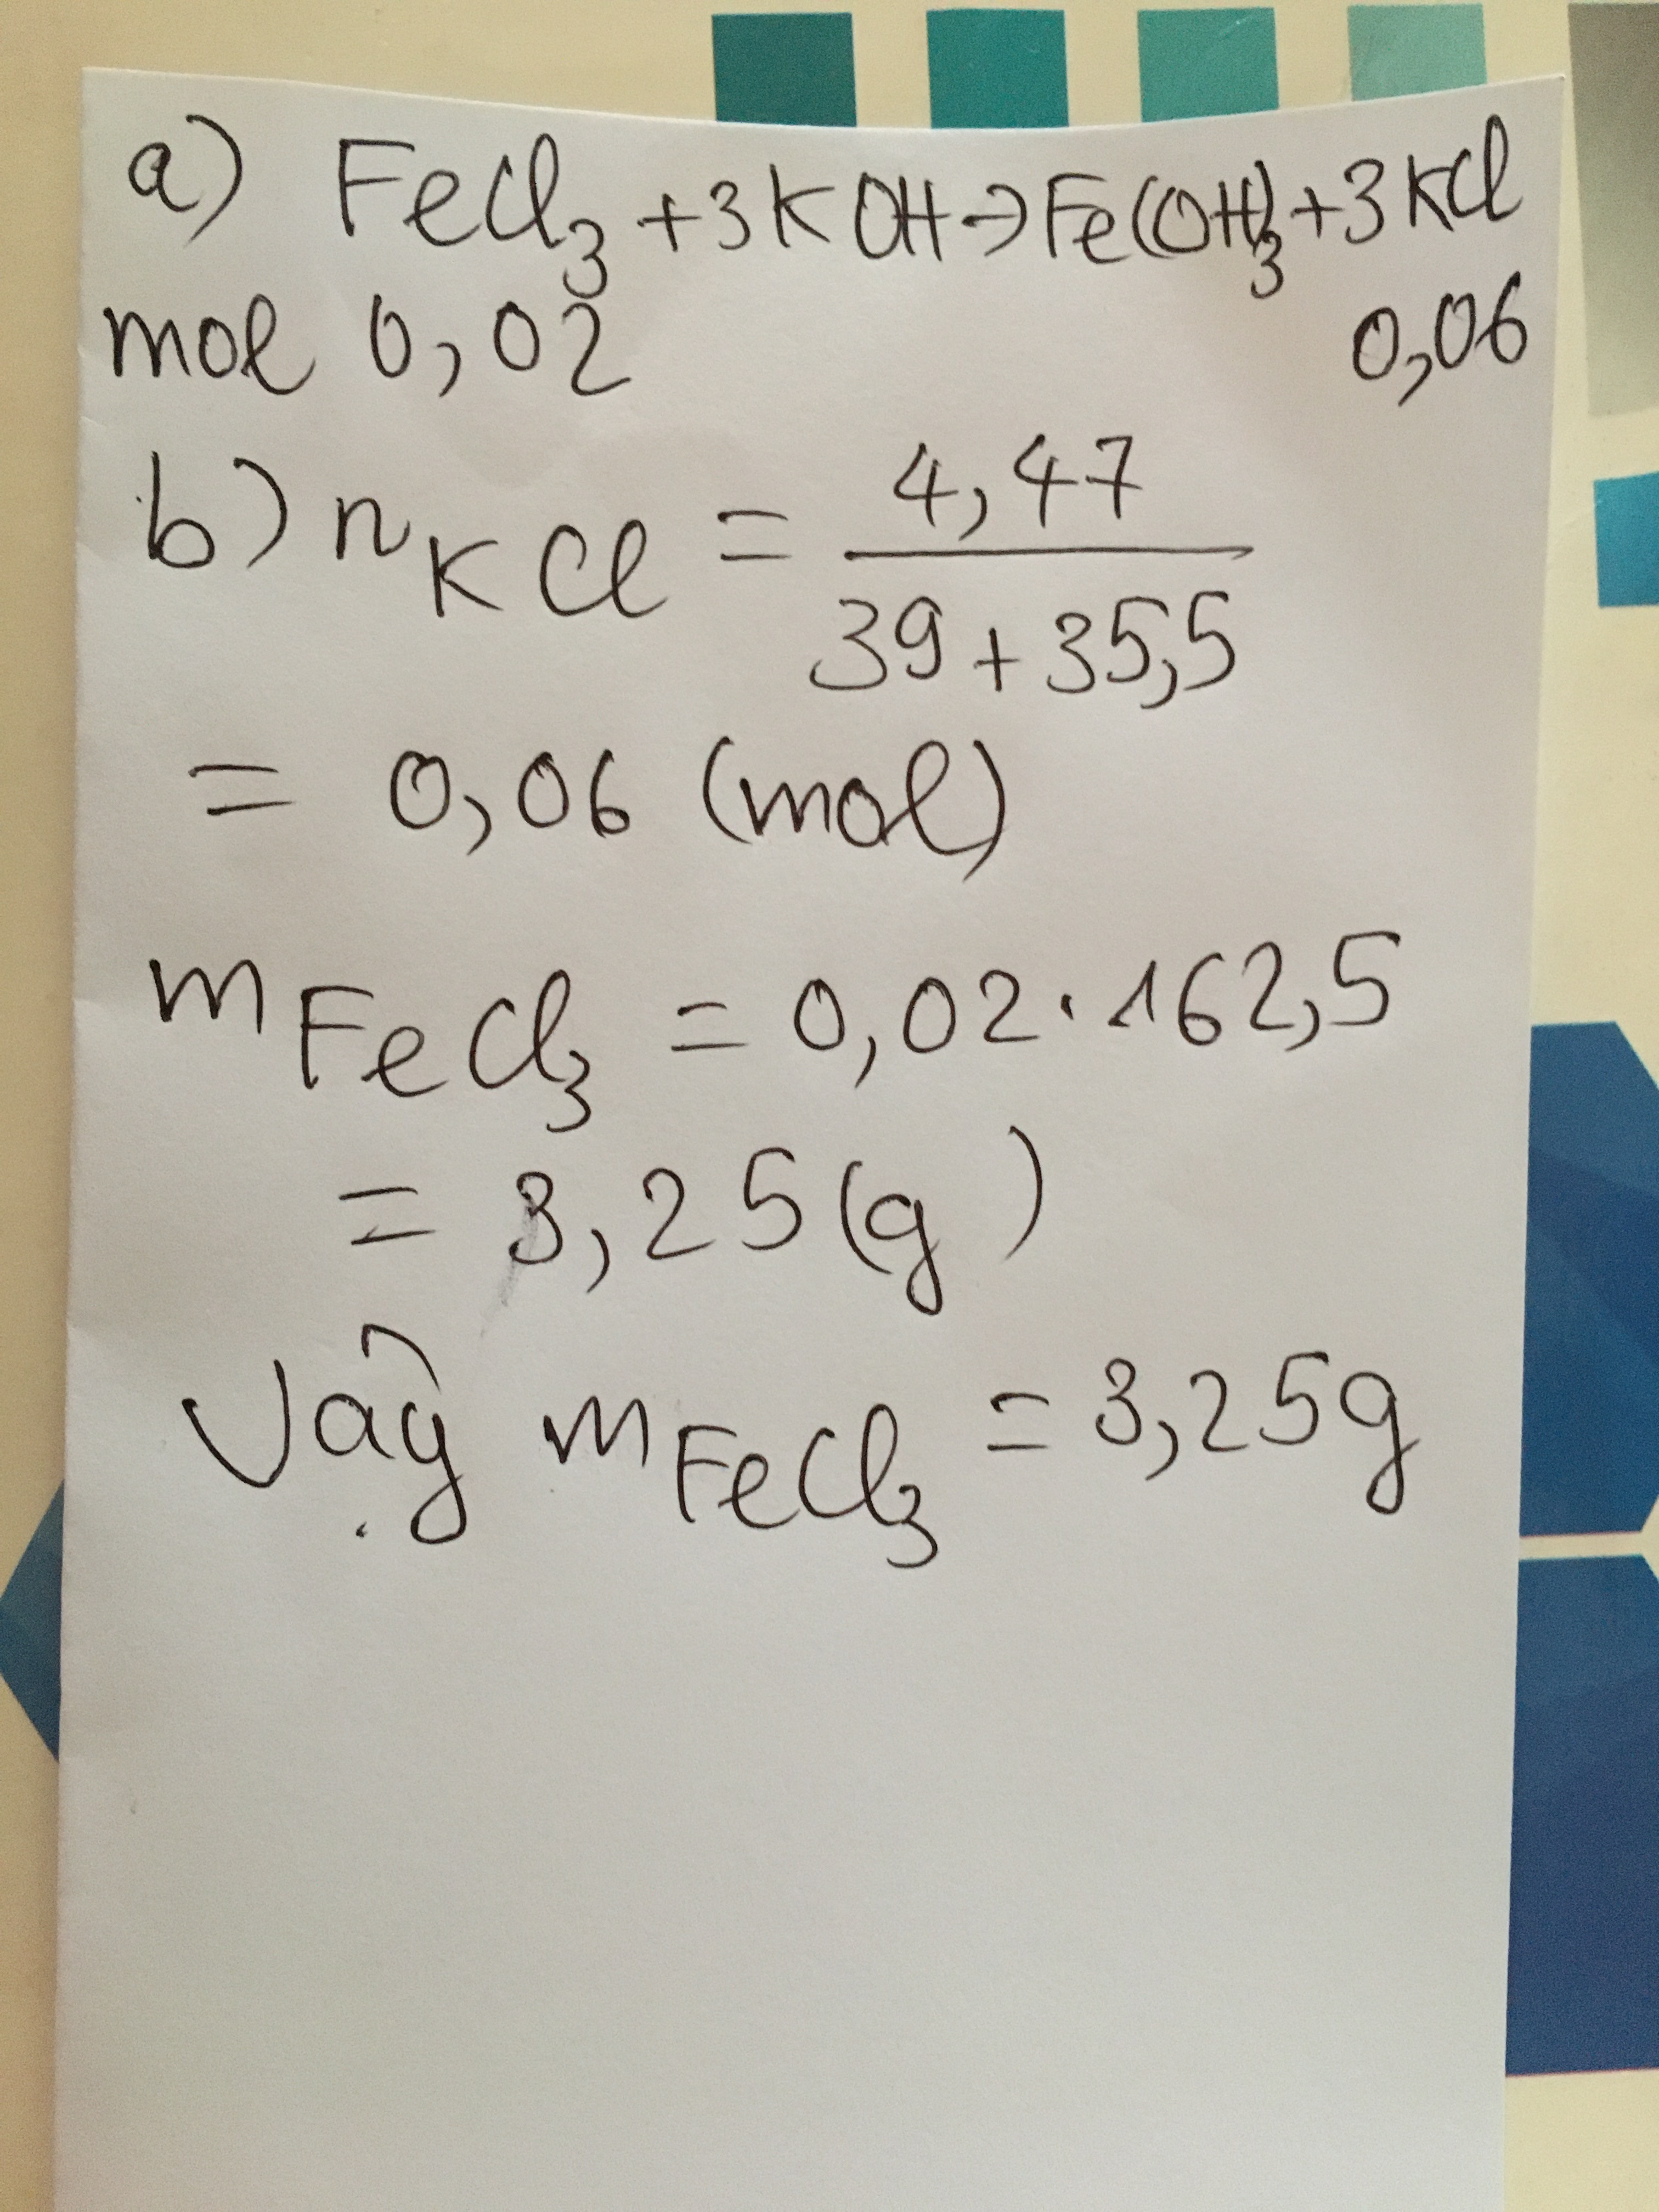 a) FeCl₃ + 3KOH → Fe(OH)₃ + 3KCl
mol 0,02 0,06
b) n KCl = 4,47 / 39 + 35,5
= 0,06 (mol)
m FeCl₃ = 0,02 . 162,5
= 3,25 (g)
Vậy m FeCl₃ = 3,25g